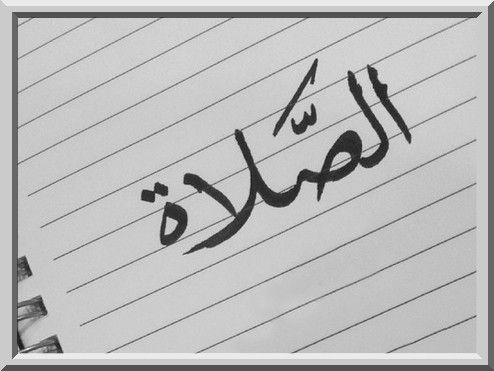 الصَّلاة